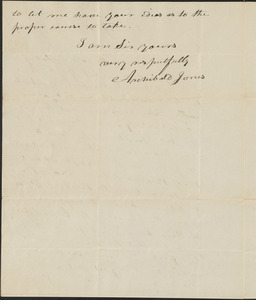 to let me have your Ideas as to the
proper course to take.
I am Sir yours
very respectfully
Archibald Jones